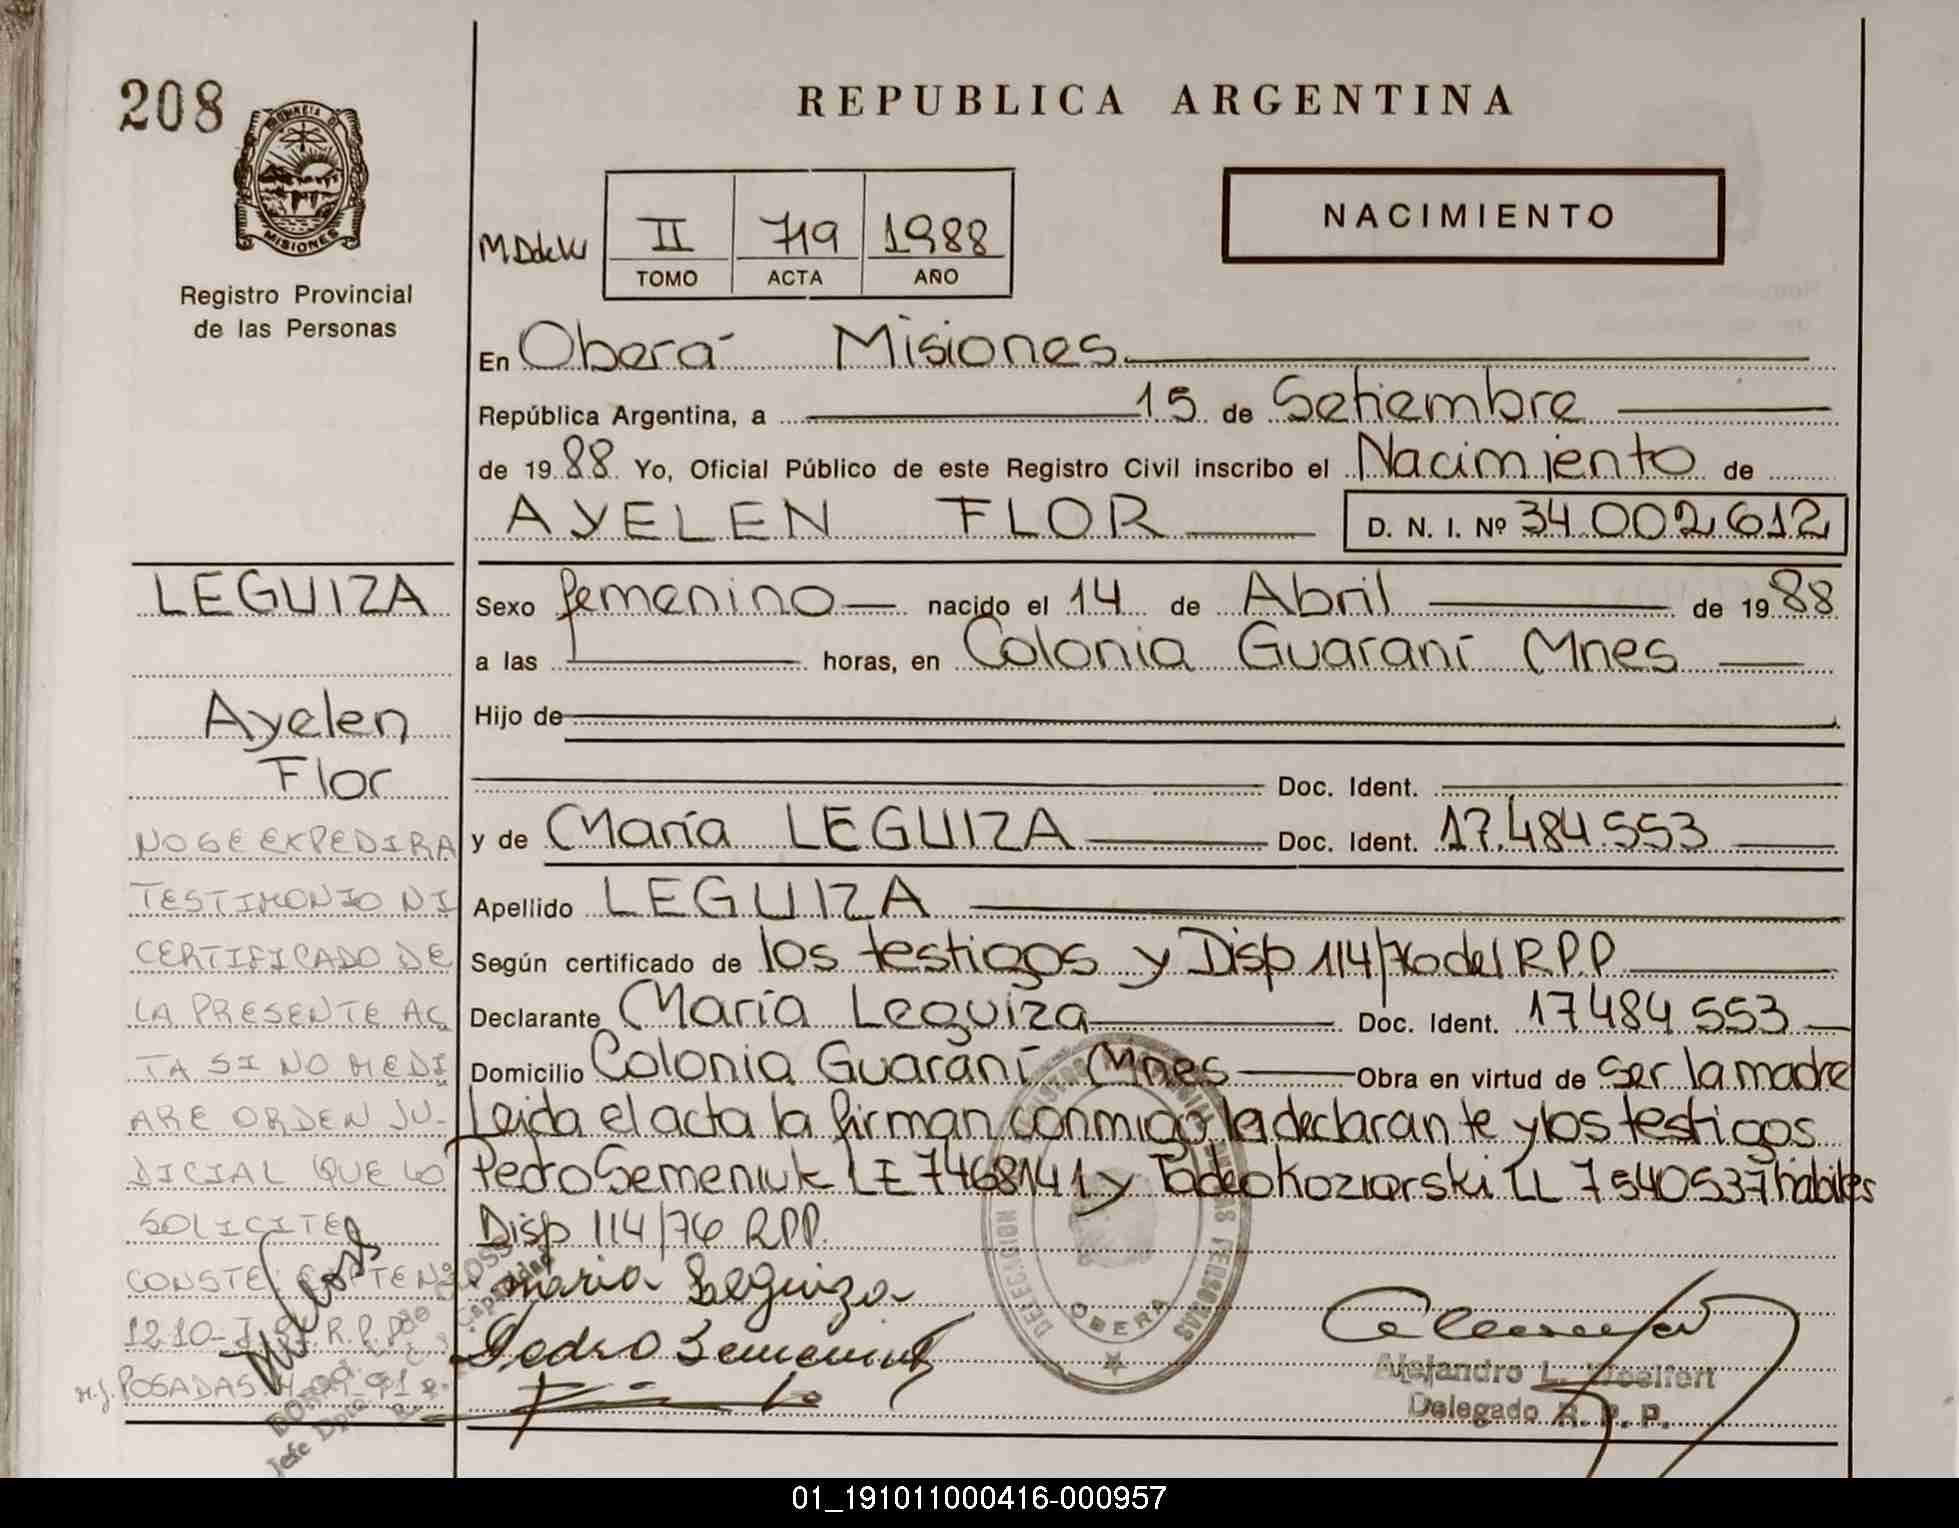 208
REPUBLICA ARGENTINA
MISIONES
Registro Provincial
de las Personas
II 719 1988
TOMO ACTA AÑO
NACIMIENTO
En Oberá Misiones
República Argentina, a 15 de Setiembre
de 1988 Yo, Oficial Público de este Registro Civil inscribo el Nacimiento de
AYELEN FLOR D. N. I. Nº 34.002.612
LEGUIZA
Ayelen
Flor
NO SE EXPEDIRA
TESTIMONIO NI
CERTIFICADO DE
LA PRESENTE AC
TA SI NO MEDI
ARE ORDEN JU-
DICIAL QUE LO
SOLICITE
CONSTE
1210-
POSADAS
Sexo femenino nacido el 14 de Abril de 1988
a las horas, en Colonia Guaraní Mnes
Hijo de
Doc. Ident.
y de María LEGUIZA Doc. Ident. 17.484.553
Apellido LEGUIZA
Según certificado de los testigos y Disp 114/76 del R.P.P
Declarante María Leguiza Doc. Ident. 17484553
Domicilio Colonia Guaraní Mnes Obra en virtud de ser la madre
Leida el acta la firman conmigo la declarante y los testigos
Pedro Semeniuk LE 7468141 y Tadeo Koziarski LE 7540537 hábiles
Disp 114/76 RPP.
Maria Leguiza
Pedro Semeniuk
OBERA
Alejandro L. Woelfert
Delegado R. P. P.
01_191011000416-000957